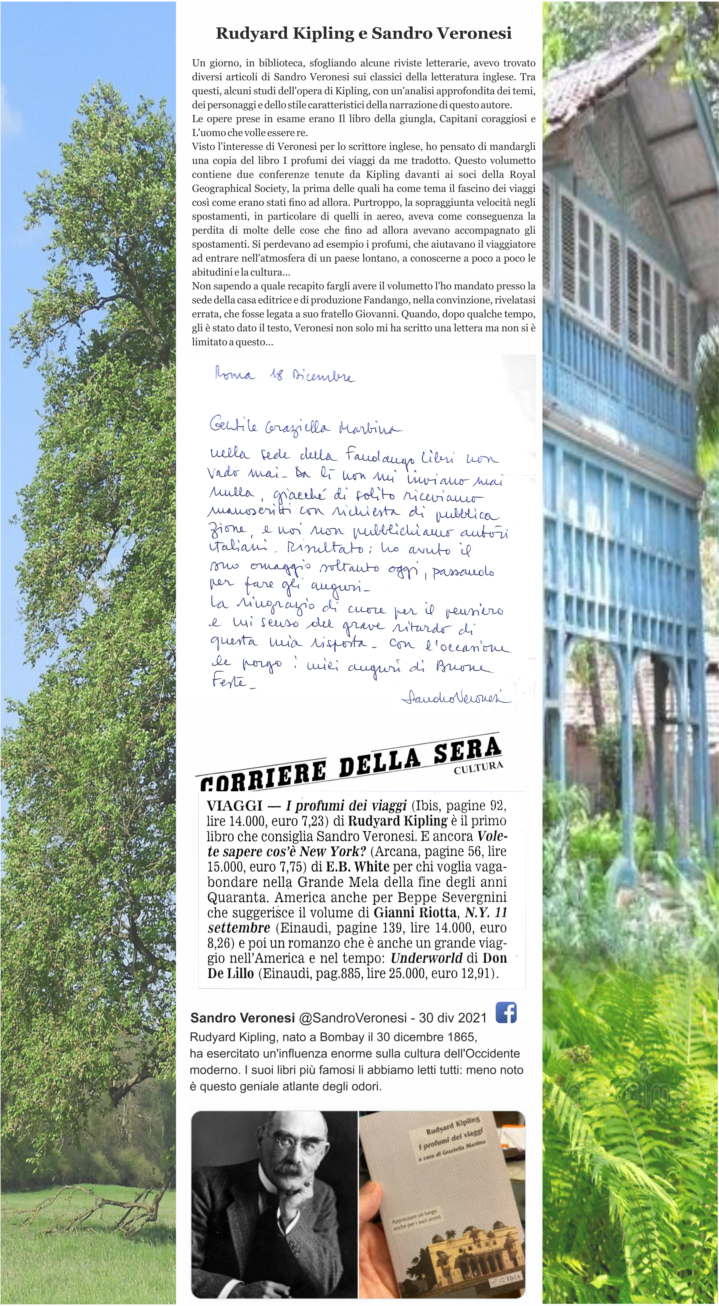 Rudyard Kipling e Sandro Veronesi
Un giorno, in biblioteca, sfogliando alcune riviste letterarie, avevo trovato
diversi articoli di Sandro Veronesi sui classici della letteratura inglese. Tra
questi, alcuni studi dell'opera di Kipling, con un'analisi approfondita dei temi,
dei personaggi e dello stile caratteristici della narrazione di questo autore.
Le opere prese in esame erano Il libro della giungla, Capitani coraggiosi e
L'uomo che volle essere re.
Visto l'interesse di Veronesi per lo scrittore inglese, ho pensato di mandargli
una copia del libro I profumi dei viaggi da me tradotto. Questo volumetto
contiene due conferenze tenute da Kipling davanti ai soci della Royal
Geographical Society, la prima delle quali ha come tema il fascino dei viaggi
così come erano stati fino ad allora. Purtroppo, la sopraggiunta velocità negli
spostamenti, in particolare di quelli in aereo, aveva come conseguenza la
perdita di molte delle cose che fino ad allora avevano accompagnato gli
spostamenti. Si perdevano ad esempio i profumi, che aiutavano il viaggiatore
ad entrare nell'atmosfera di un paese lontano, a conoscerne a poco a poco le
abitudini e la cultura...
Non sapendo a quale recapito fargli avere il volumetto l'ho mandato presso la
sede della casa editrice e di produzione Fandango, nella convinzione, rivelatasi
errata, che fosse legata a suo fratello Giovanni. Quando, dopo qualche tempo,
gli è stato dato il testo, Veronesi non solo mi ha scritto una lettera ma non si è
limitato a questo...
Roma 18 Dicembre
Gentile Graziella Martina
nella sede della Fandango Libri non
vado mai - Da lì non mi inviano mai
nulla, giacché di solito riceviamo
manoscritti con richiesta di pubblica
zione, e noi non pubblichiamo autori
italiani. Risultato: ho avuto il
suo omaggio soltanto oggi, passando
per fare gli auguri -
La ringrazio di cuore per il pensiero
e mi scuso del grave ritardo di
questa mia risposta - Con l'occasione
le porgo i miei auguri di Buone
Feste -
Sandro Veronesi
CORRIERE DELLA SERA
CULTURA
VIAGGI — I profumi dei viaggi (Ibis, pagine 92,
lire 14.000, euro 7,23) di Rudyard Kipling è il primo
libro che consiglia Sandro Veronesi. E ancora Vole-
te sapere cos'è New York? (Arcana, pagine 56, lire
15.000, euro 7,75) di E.B. White per chi voglia vaga-
bondare nella Grande Mela della fine degli anni
Quaranta. America anche per Beppe Severgnini
che suggerisce il volume di Gianni Riotta, N.Y. 11
settembre (Einaudi, pagine 139, lire 14.000, euro
8,26) e poi un romanzo che è anche un grande viag-
gio nell'America e nel tempo: Underworld di Don
De Lillo (Einaudi, pag.885, lire 25.000, euro 12,91).
Sandro Veronesi @SandroVeronesi - 30 div 2021
Rudyard Kipling, nato a Bombay il 30 dicembre 1865,
ha esercitato un'influenza enorme sulla cultura dell'Occidente
moderno. I suoi libri più famosi li abbiamo letti tutti: meno noto
è questo geniale atlante degli odori.
Rudyard Kipling
I profumi dei viaggi
a cura di Graziella Martina
Apprezzare un luogo
anche per i suoi aromi
Ibis